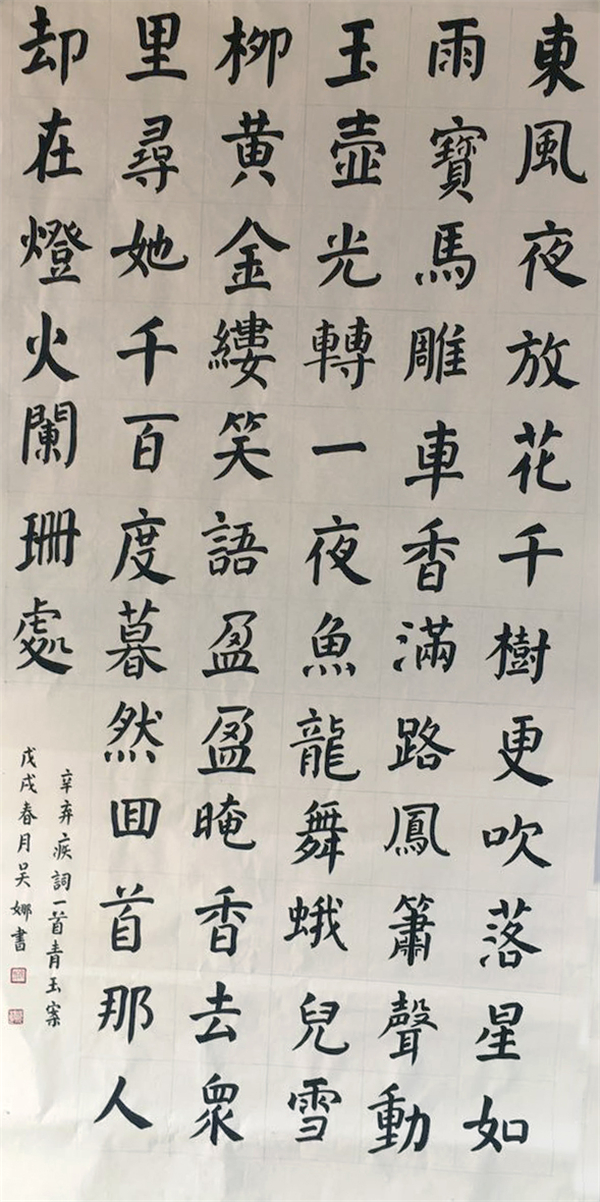 東風夜放花千樹更吹落星如
雨寶馬雕車香滿路鳳簫聲動
玉壺光轉一夜魚龍舞蛾兒雪
柳黄金縷笑語盈盈晻香去眾
里尋她千百度暮然回首那人
却在燈火闌珊處
辛弃疾詞一首青玉案
戊戌春月吴娜書